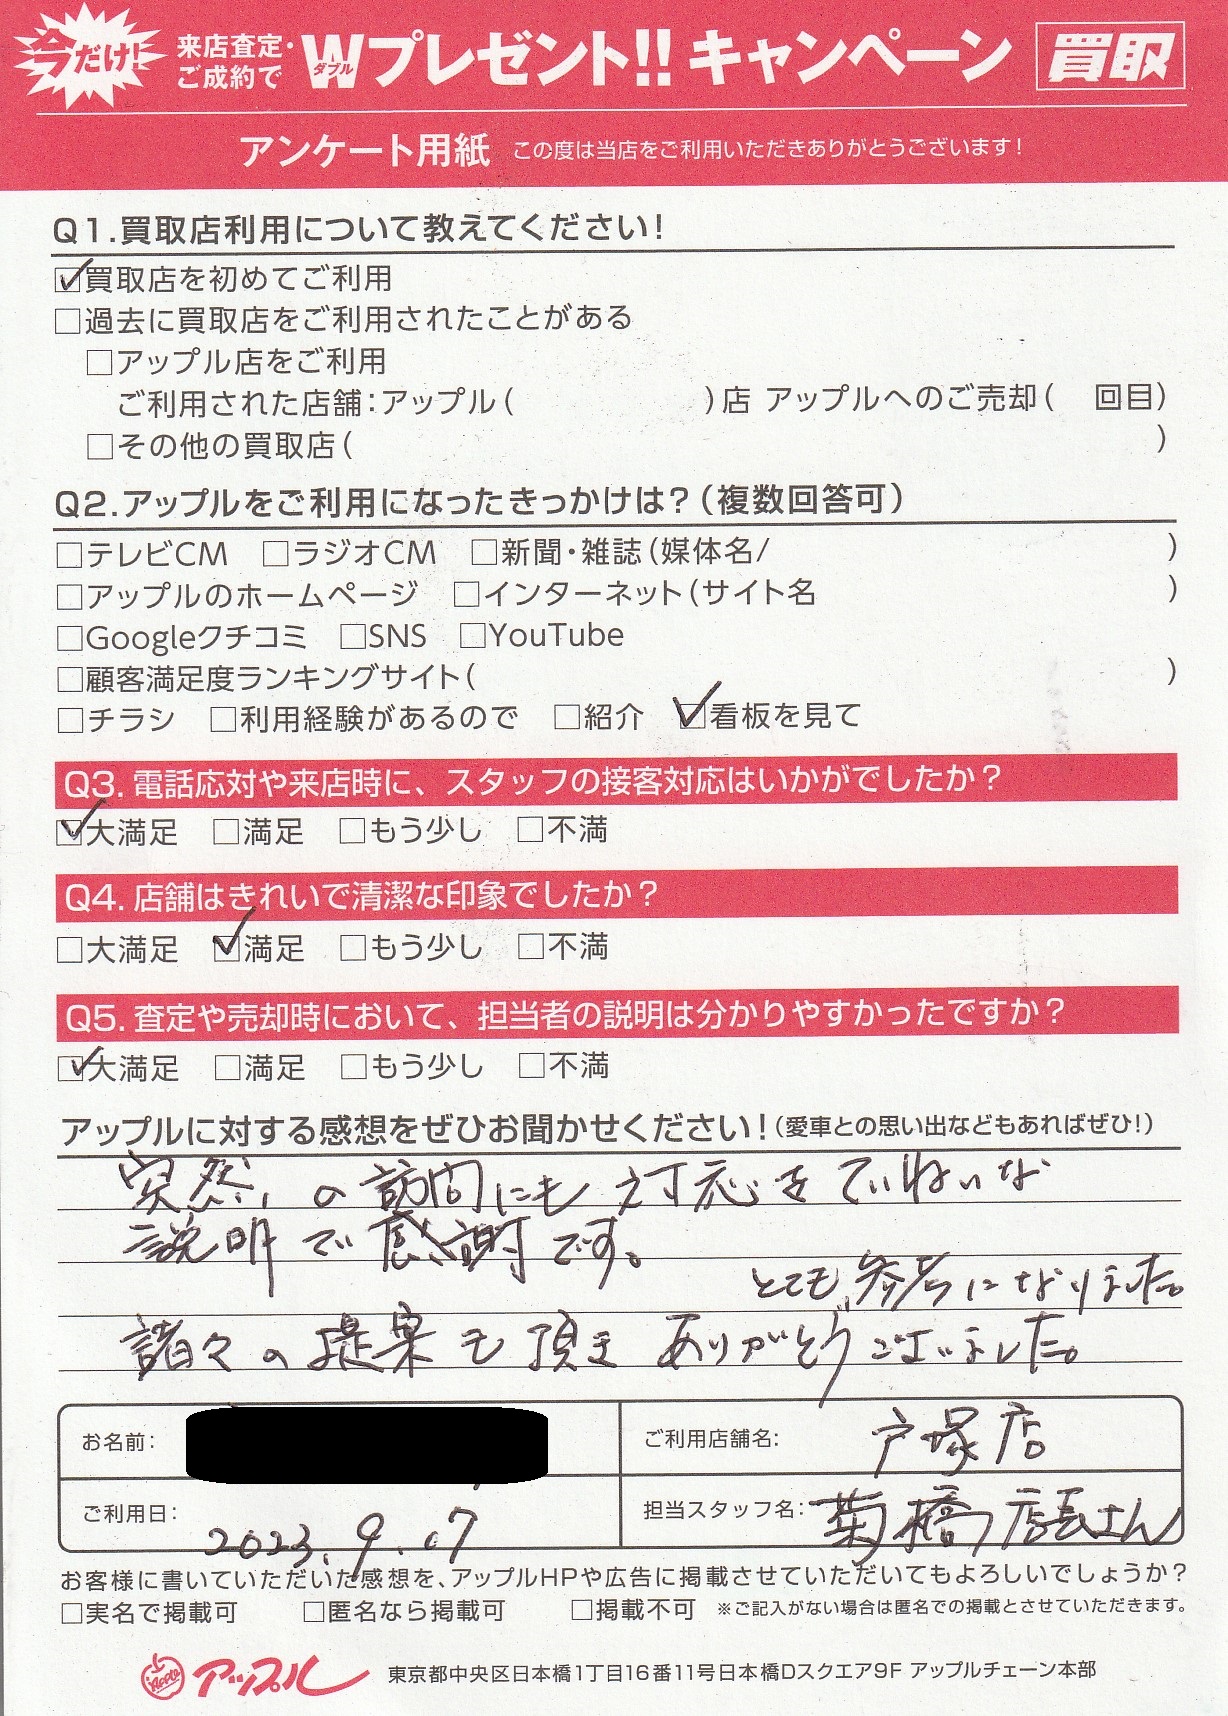 今だけ!
来店査定・ご成約で Wダブルプレゼント!! キャンペーン 買取
アンケート用紙 この度は当店をご利用いただきありがとうございます!
Q1.買取店利用について教えてください!
☑買取店を初めてご利用
□過去に買取店をご利用されたことがある
□アップル店をご利用
ご利用された店舗:アップル( )店 アップルへのご売却( 回目)
□その他の買取店( )
Q2.アップルをご利用になったきっかけは?(複数回答可)
□テレビCM □ラジオCM □新聞・雑誌(媒体名/ )
□アップルのホームページ □インターネット(サイト名 )
□Googleクチコミ □SNS □YouTube
□顧客満足度ランキングサイト( )
□チラシ □利用経験があるので □紹介 ☑看板を見て
Q3. 電話応対や来店時に、スタッフの接客対応はいかがでしたか?
☑大満足 □満足 □もう少し □不満
Q4. 店舗はきれいで清潔な印象でしたか?
□大満足 ☑満足 □もう少し □不満
Q5. 査定や売却時において、担当者の説明は分かりやすかったですか?
☑大満足 □満足 □もう少し □不満
アップルに対する感想をぜひお聞かせください!(愛車との思い出などもあればぜひ!)
突然の訪問にも対応をていねいな
説明で感謝です。
とても参考になりました。
諸々の提案も頂きありがとうございました。
お名前:
ご利用店舗名: 戸塚店
ご利用日: 2023.9.07
担当スタッフ名: 菊橋店長さん
お客様に書いていただいた感想を、アップルHPや広告に掲載させていただいてもよろしいでしょうか?
□実名で掲載可 □匿名なら掲載可 □掲載不可 ※ご記入がない場合は匿名での掲載とさせていただきます。
Apple アップル 東京都中央区日本橋1丁目16番11号日本橋Dスクエア9F アップルチェーン本部